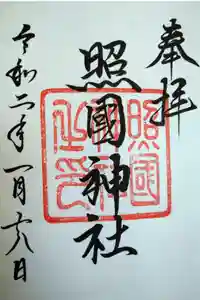 奉拝
照國神社
令和二年一月十八日
照國神社之印